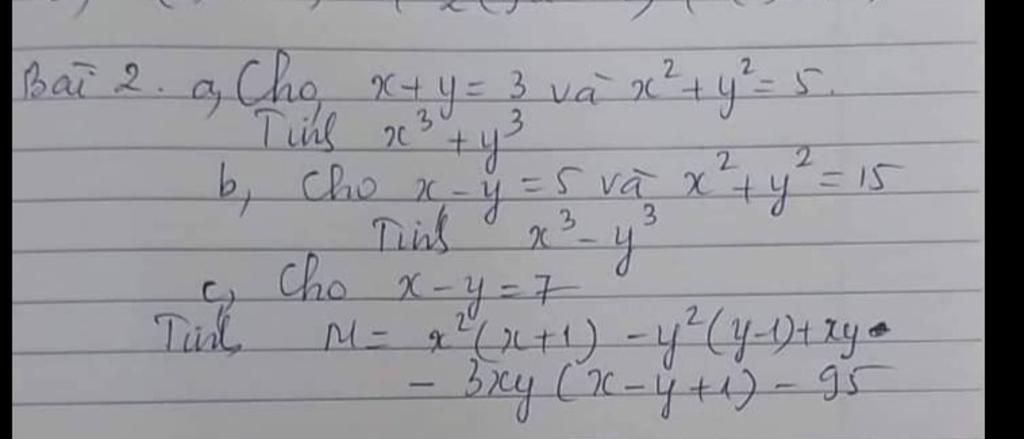 Bài 2. a, Cho x + y = 3 và x² + y² = 5.
Tính x³ + y³
b, Cho x - y = 5 và x² + y² = 15
Tính x³ - y³
c, Cho x - y = 7
Tính M = x²(x+1) - y²(y-1) + xy
- 3xy (x - y + 1) - 95